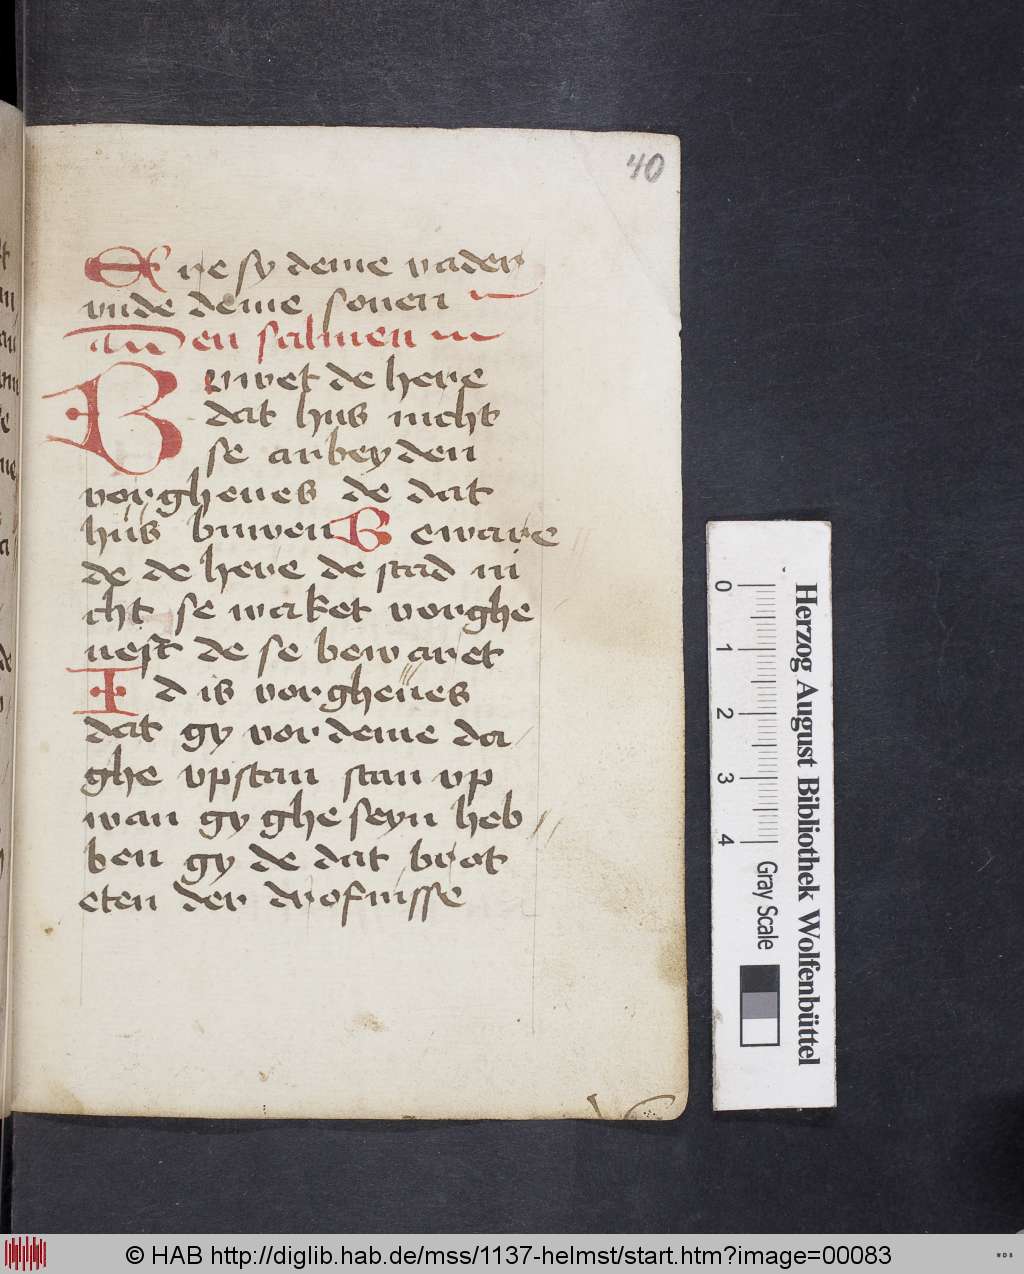 40
Ere sy deme vader
vnde deme sonen
en salmen
Buwet de here
dat hus nicht
se arbeyden
vorgheues de dat
hus buwen Beware
de de here de stad ni
cht se waket vorghe
uest de se bewaret
Id is vorgheues
dat gy vor deme da
ghe vpstan stan vp
wan gy ghe seyn heb
ben gy de dat brot
eten der drofnisse
Herzog August Bibliothek Wolfenbüttel
0 1 2 3 4
Gray Scale
© HAB http://diglib.hab.de/mss/1137-helmst/start.htm?image=00083